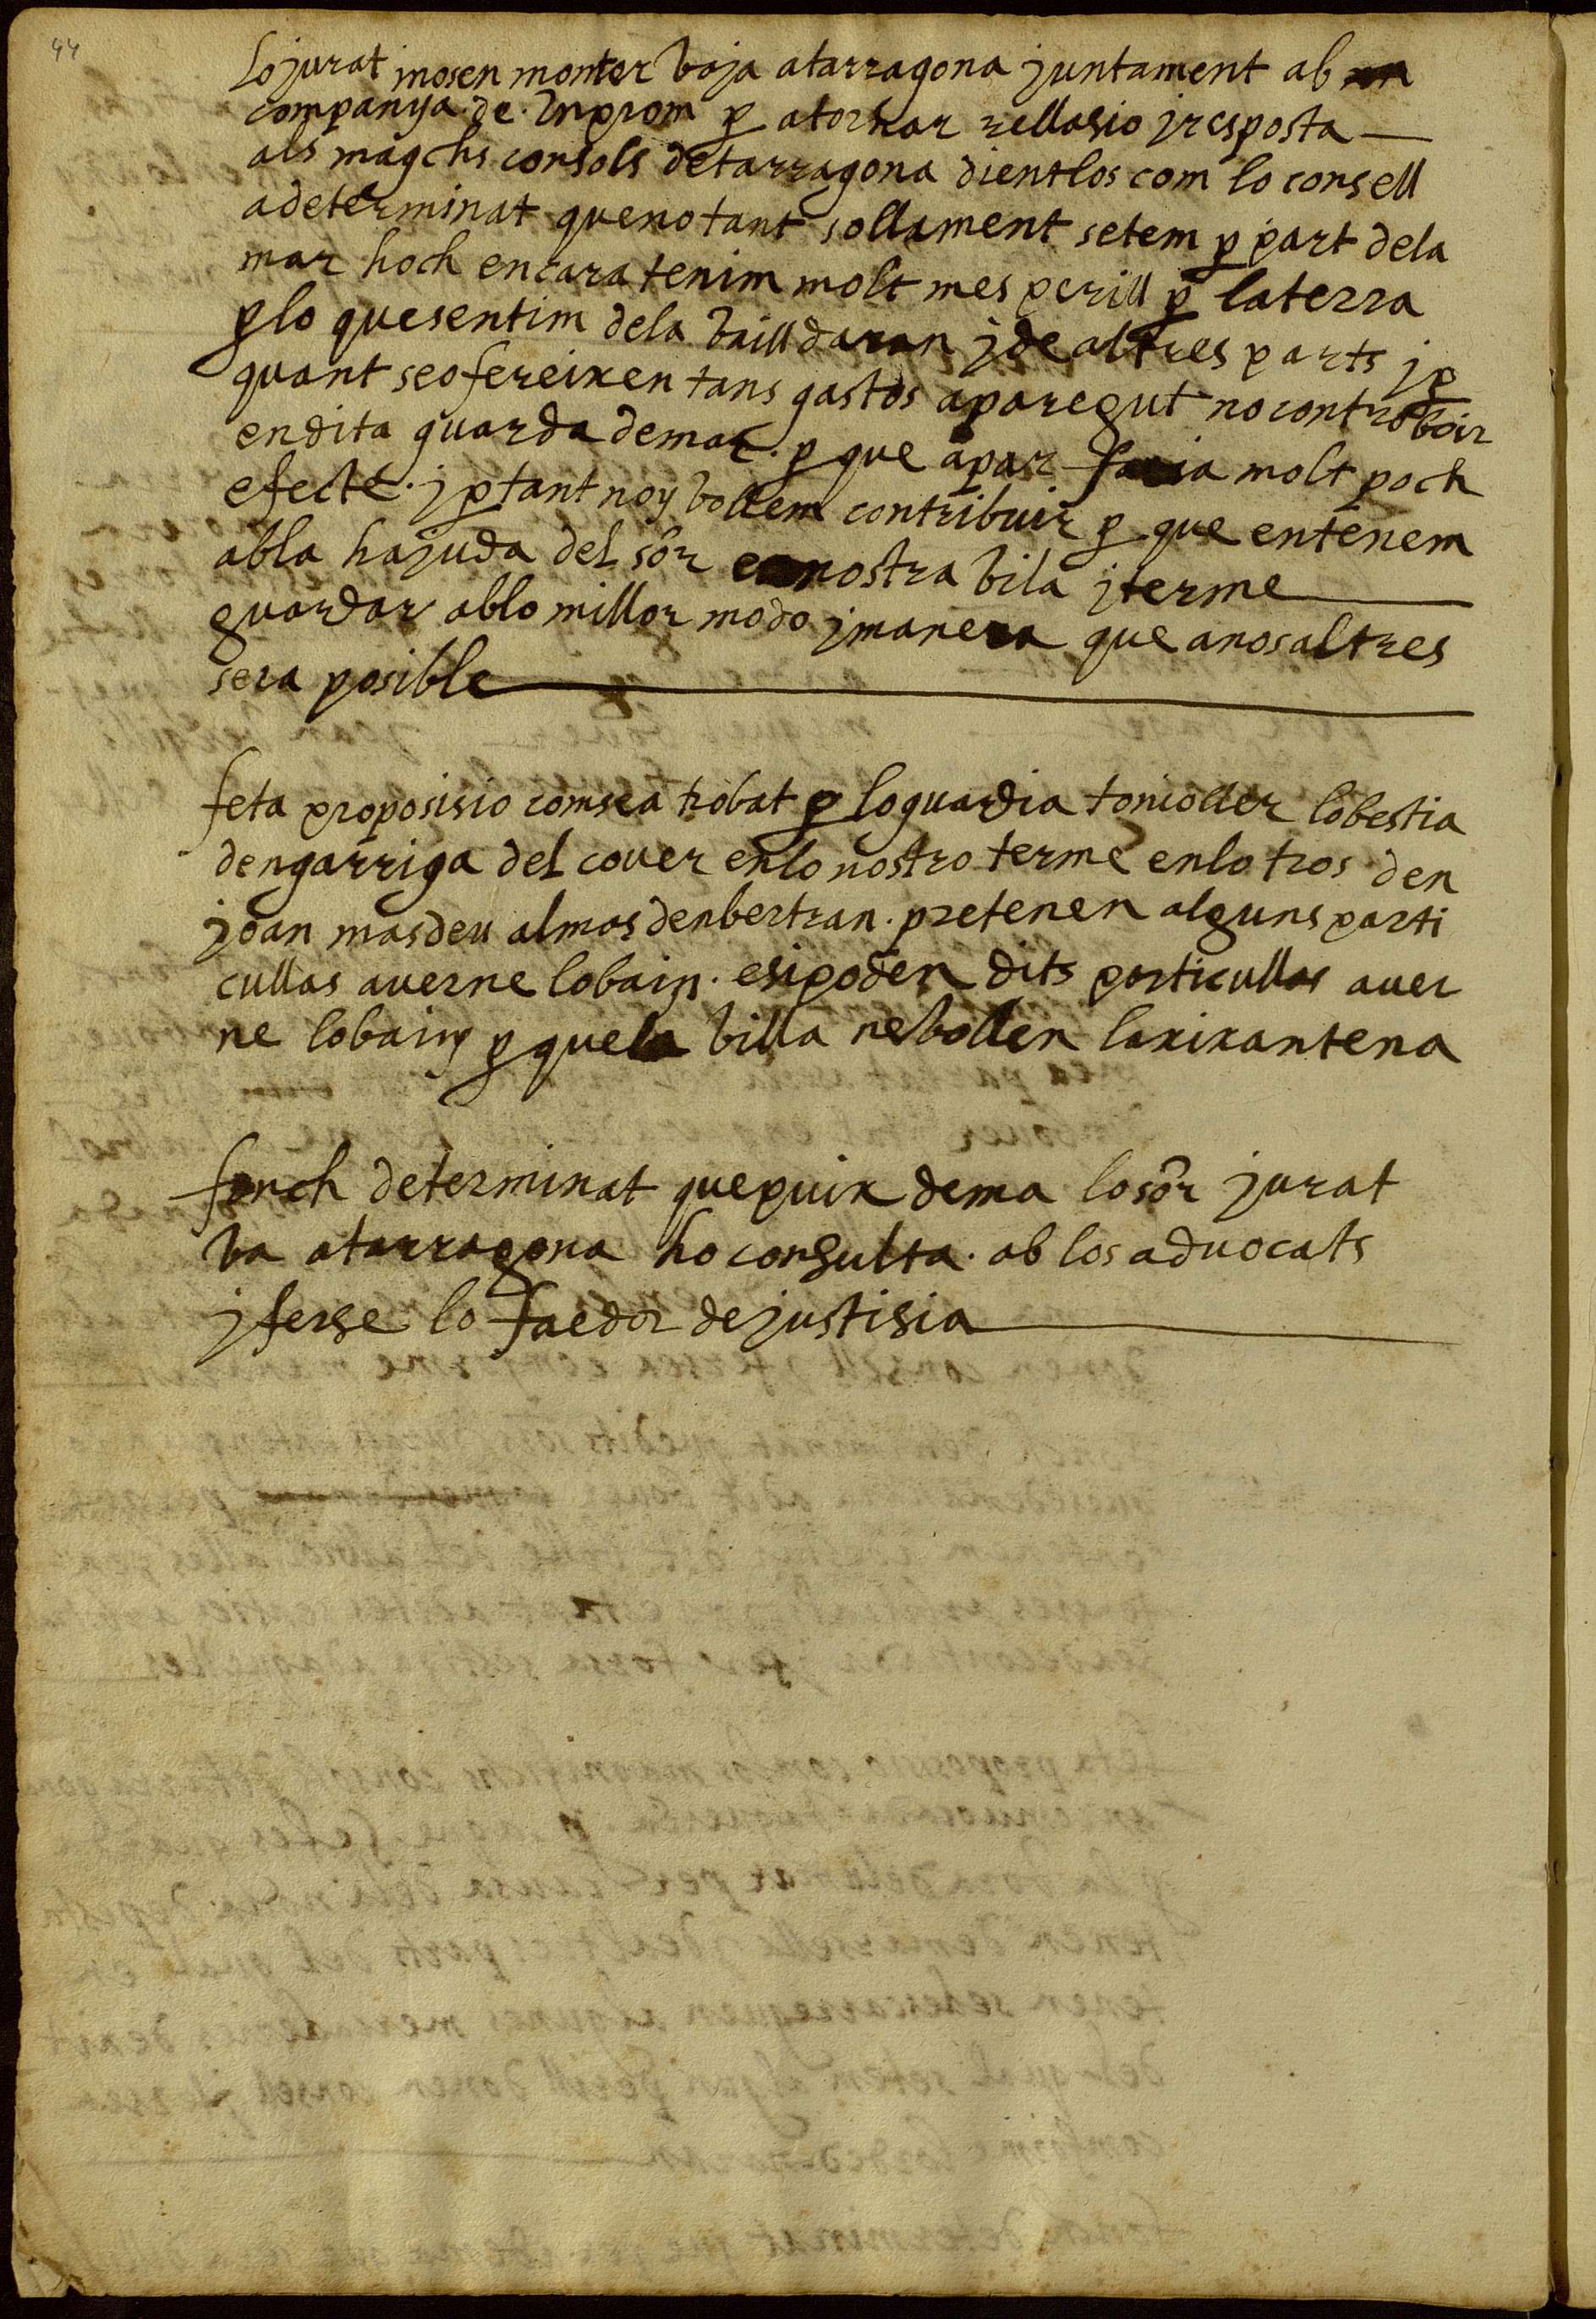 44
Lo jurat mosen monter baja atarragona juntament ab
companya de hnprom p atornar rellasio j resposta
als magchs consols detarragona dientlos com lo consell
adeterminat queno tant sollament setem p part dela
mar hoch encara tenim molt mes perill p laterra
plo quesentim dela baill daran j de altres parts j p
quant seofereixen tans gastos aparegut no controboir
endita guarda demar. p que apar faria molt poch
efecte. j ptant noy bollem contribuir p que entenem
abla hajuda del sor nostra bila j terme
guardar ablo millor modo j manera que anosaltres
sera posible
feta proposisio comsea trobat p loguardia tonioller lobestia
dengarriga del couer enlo nostro terme enlo tros den
joan masdeu almas denbertran. pretenen alguns parti
cullas auerne lobain. esipoden dits particullas auer
ne lobain p quela billa nebollen laxixantena
fonch determinat quepuix dema losor jurat
ba atarragona ho consulta. ab los aduocats
j ferse lo faedor dejustisia